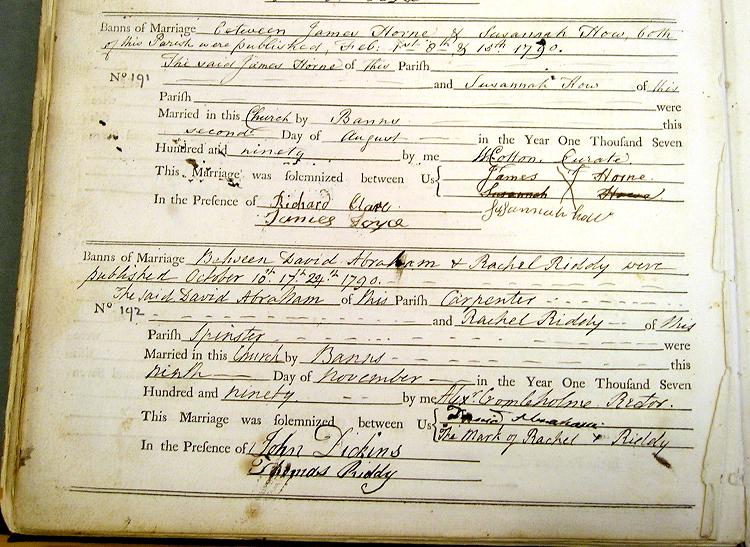 Banns of Marriage between James Horne & Susannah How, both
of this Parish were published, Feb: 1st 8th & 15th 1790.
The said James Horne of this Parish
No 191 and Susannah How of this
Parish were
Married in this Church by Banns this
second Day of August in the Year One Thousand Seven
Hundred and ninety by me Cotton Curate.
This Marriage was solemnized between Us James X Horne
Susannah Howe
In the Presence of Richard Clare Susannah how
James Joyce
Banns of Marriage Between David Abraham & Rachel Riddy were
published October 10th. 17th. 24th. 1790.
The said David Abraham of this Parish Carpenter
No 192 and Rachel Riddy of this
Parish Spinster were
Married in this Church by Banns this
ninth Day of November in the Year One Thousand Seven
Hundred and ninety by me Alexr Crombleholme Rector.
This Marriage was solemnized between Us David Abraham
The Mark of Rachel + Riddy
In the Presence of John Dickins
Thomas Riddy